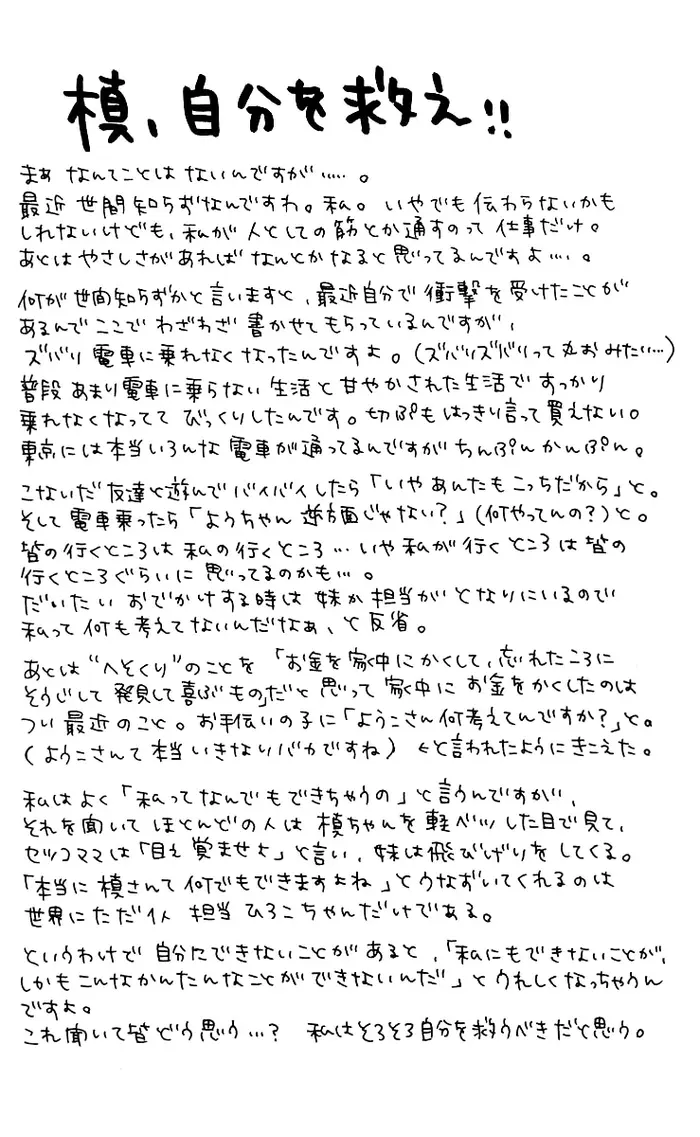 槙、自分を救え!!
まぁ なんてことは ないんですが……。
最近 世間知らずなんですわ。私。いやでも 伝わらないかも
しれないけども、私が 人としての筋とか通すのって 仕事だけ。
あとはやさしさがあれば なんとかなると思ってるんですよ…。
何が世間知らずかと言いますと、最近自分で衝撃を受けたことが
あるんで ここで わざわざ 書かせてもらっているんですが、
ズバリ 電車に乗れなくなったんですよ。(ズバリズバリって丸おみたい…)
普段 あまり電車に乗らない 生活と甘やかされた生活で すっかり
乗れなくなってて びっくりしたんです。切ぷもはっきり言って買えない。
東京には本当いろんな 電車が通ってるんですが ちんぷんかんぷん。
こないだ 友達と遊んで バイバイしたら「いや あんたもこっちだから」と。
そして 電車乗ったら「ようちゃん 逆方面じゃない?」(何やってんの?)と。
皆の行くところは 私の行くところ…いや 私が行くところは皆の
行くところぐらいに思ってるのかも…。
だいたい おでかけする時は 妹か担当がとなりにいるので
私って何も考えてないんだなぁ、と反省。
あとは“へそくり”のことを「お金を家中にかくして、忘れたころに
そうじして 発見して喜ぶもの」だと思って 家中に お金をかくしたのは
つい 最近のこと。お手伝いの子に「ようこさん何考えてんですか?」と。
(ようこさんて本当いきなりバカですね) ←と言われたようにきこえた。
私はよく「私ってなんでもできちゃうの」と言うんですが、
それを聞いて ほとんどの人は 槙ちゃんを軽ベツした目で見て、
セツコママは「目ぇ覚ませよ」と言い、妹は飛びげりを してくる。
「本当に 槙さんて何でもできますよね」とうなずいてくれるのは
世界にただ1人 担当 ひろこちゃんだけである。
というわけで 自分にできないことがあると、「私にもできないことが、
しかもこんなかんたんなことができないんだ」とうれしくなっちゃうん
ですよ。
これ聞いて皆どう思う…? 私はそろそろ自分を救うべきだと思う。